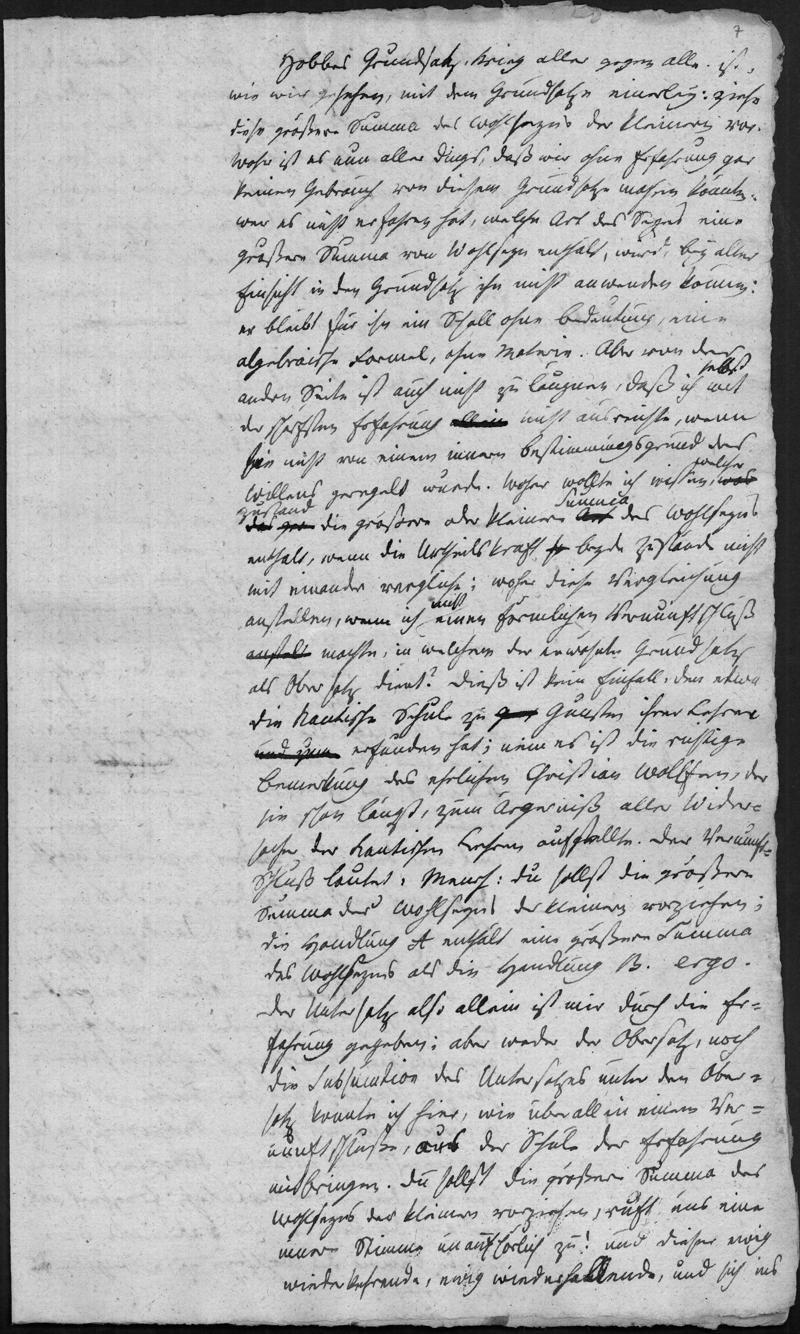 7
Hobbes Grundsatz, Krieg aller gegen alle. ist,
wie wir gesehen, mit dem Grundsatze einerley: ziehe
diese größere Summa des Wohlseyns der kleinern vor.
Wahr ist es nun aller dings, daß wir ohne Erfahrung gar
keinen Gebrauch von diesem Grundsatze machen könnten.
wer es nicht erfahren hat, welche Art des Seyns eine
größere Summa von Wohlseyn enthält, wird, bey aller
Einsicht in den Grundsatz ihn nicht anwenden können:
er bleibt für ihn ein Schall ohne Bedeutung, eine
algebraische Formel, ohne Materie. Aber von der
andern Seite ist auch nicht zu läugnen, daß ich selbst mit
der schärfsten Erfahrung allein nicht ausreichte, wenn
sie nicht von einem innern Bestimmungsgrund des
Willens geregelt wurde. Woher wollte ich wissen, welcher was
Zustand die größere oder kleinere Summa Art des Wohlseyns
enthält, wenn die Urtheilskraft beyde Zustände nicht
mit einander vergliche; woher diese Vergleichung
anstellen, wenn ich nicht einen förmlichen Vernunftschluß
anstelle machte, in welchem der erwähnte Grundsatz
als Obersatz dient? Dieß ist kein Einfall, den etwa
die Kantische Schule zu Gunsten ihrer Lehren
und zum erfunden hat; nein es ist die richtige
Bemerkung des ehrlichen Christian Wolffen, der
sie schon längst, zum Ärgerniß aller Wider-
sacher der Kantischen Lehren aufstellte. Der Vernunft-
Schluß lautet: Mensch: du sollst die größere
Summa des Wohlseyns der kleinern vorziehen;
die Handlung A enthält eine größere Summa
des Wohlseyns als die Handlung B. ergo.
Der Untersatz also allein ist mir durch die Er-
fahrung gegeben; aber weder der Obersatz, noch
die Subsumtion des Untersatzes unter den Ober-
satz konnte ich hier, wie überall in einem Ver-
nunftschluße, aus der Schule der Erfahrung
mitbringen. Du sollst die größere Summa des
Wohlseyns der kleinern vorziehen, ruft uns eine
innere Stimme unaufhörlich zu! und dieser ewig
wiederkehrende, ewig wiederhallende, und sich ins